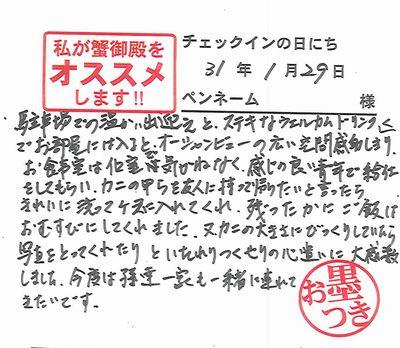 私が蟹御殿を
オススメ
します!!
チェックインの日にち
31年1月29日
ペンネーム 様
駐車場での温かい出迎えと、ステキなウェルカムドリンク
でお部屋には入ると、オーシャンビューの広い空間感動しまし
お食事室は個室で気がねなく、感じの良い青年で給仕
をしてもらい、カニの甲らを友人に持って帰りたいと言ったら
きれいに洗ってケースに入れてくれ、残ったかにご飯は
おむすびにしてくれました。又カニの大きさにびっくりしていたら
写真をとってくれたりといたれりつくせりの心遣いに大感激
しました。今度は孫達一家も一緒に連れて
きたいです。
お墨
つき